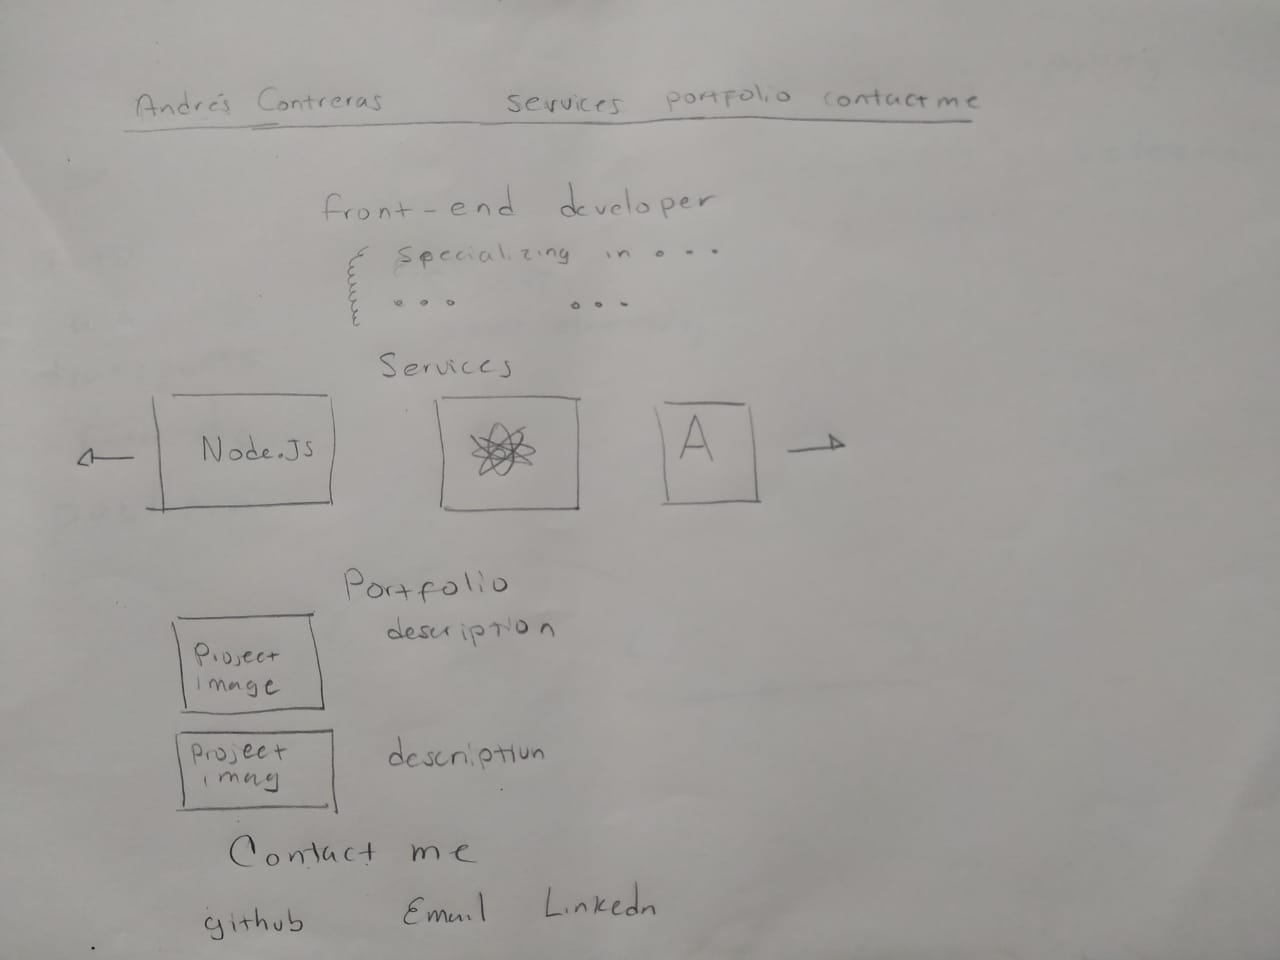 Andrés Contreras services portfolio contact me
front-end developer
specializing in ...
... ...
Services
Node.Js
A
Portfolio
description
Project
image
Project
imag
description
Contact me
github Email Linkedn